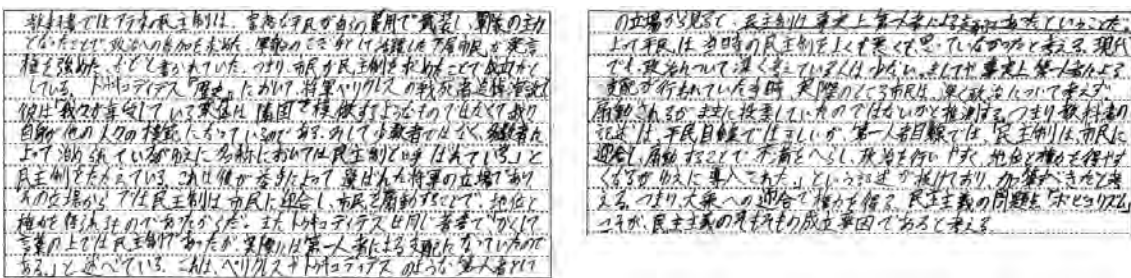 教科書ではアテネの民主制は、富裕な市民が自らの費用で武装し、軍隊の主力
となったことで、政治への参加を求めた、軍船のこぎ手として活躍した下層市民が発言
権を強めた、などと書かれていた。つまり、市民が民主制を求めたことで成立が
している。トゥキュディデス『歴史』において、将軍ペリクレスの戦死者追悼演説
彼は「我々が享受している政体は、隣国を模倣するようなものではなくて我々
自身が他の人々の模範になっているのである。そして少数者ではなく、多数者に
よって治められているがゆえに名称においては民主制と呼ばれている」と
民主制をたたえている。これは彼が委託によって選ばれた将軍の立場であり
その立場からでは民主制は市民に迎合し、市民を扇動することで、地位と
権力を得られるものであったからだ。またトゥキュディデスは同じ著書で「かくして
言葉の上では民主制であったが、実際には第一人者による支配になっていたので
ある」と述べている。これは、ペリクレスやトゥキュディデスのような第一人者として
の立場から見ると、民主制は事実上第一人者による支配であったということだ。
よって平民は当時の民主制をよくも悪くも思っていなかったと考える。現代
でも政治について深く考えている人は少ない。ましてや事実上第一人者による
支配が行われていた当時、実際のところ市民は、深く政治について考えず
扇動されるがままに投票していたのではないかと推測する。つまり教科書の
記述は、平民目線では正しいが、第一人者目線では、「民主制は、市民に
迎合し、扇動することで不満をへらし、政治を行いやすく、地位と権力を得やす
くなるがゆえに導入された」という記述が抜けており、加筆すべきだと考
える。つまり、大衆への迎合で権力を得る、民主主義の問題点「ポピュリズム」
こそが、民主主義のそもそもの成立要因であると考える。